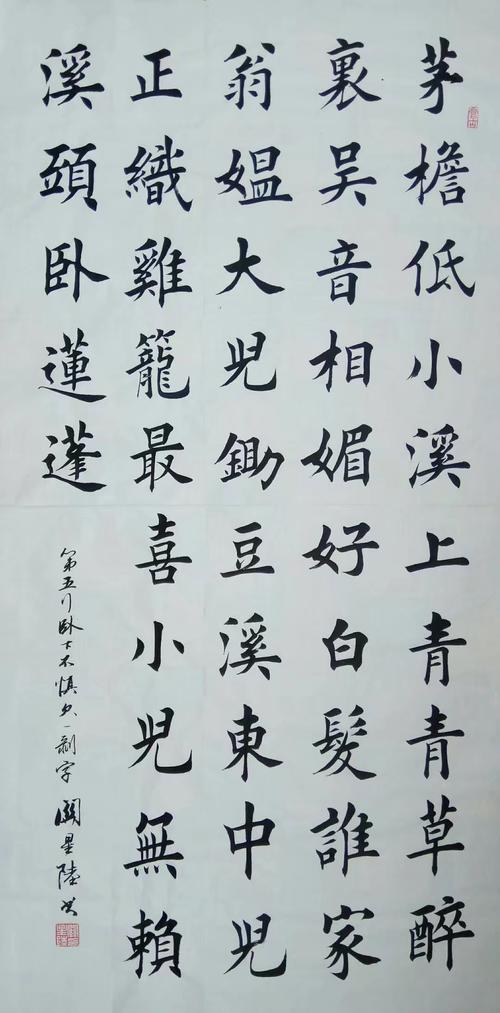 茅檐低小溪上青青草醉
裏吴音相媚好白髮誰家
翁媼大兒鋤豆溪東中兒
正織雞籠最喜小兒無賴
溪頭卧蓮蓬
第五行卧不慎欠一剥字 關星陸书